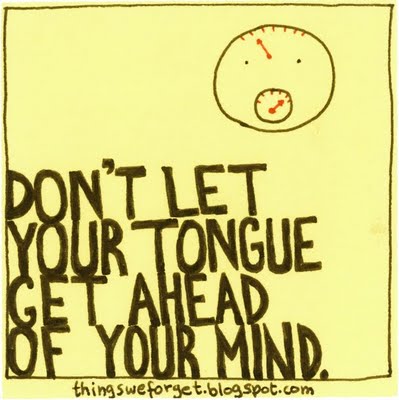 DON'T LET
YOUR TONGUE
GET AHEAD
OF YOUR MIND.
thingsweforget.blogspot.com